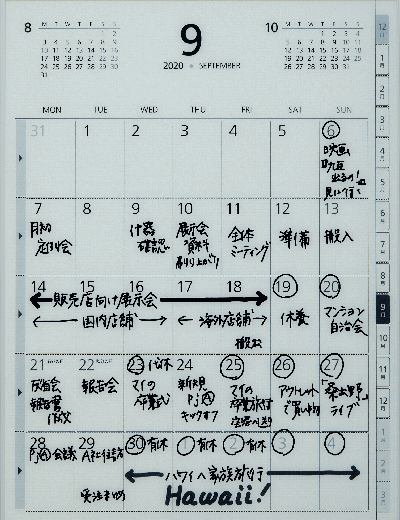 8
M T W T F S S
1 2
3 4 5 6 7 8 9
10 11 12 13 14 15 16
17 18 19 20 21 22 23
24 25 26 27 28 29 30
31
9
2020 SEPTEMBER
10
M T W T F S S
1 2 3 4
5 6 7 8 9 10 11
12 13 14 15 16 17 18
19 20 21 22 23 24 25
26 27 28 29 30 31
MON TUE WED THU FRI SAT SUN
31 1 2 3 4 5 6
映画
見に行く
7 8 9 10 11 12 13
月初
定例会
什器
確認
展示会
資料
刷り上がり
全体
ミーティング
準備
搬入
14 15 16 17 18 19 20
販売店向け展示会
国内店舗
海外店舗
搬出
休養
マンション
自治会
21 22 23 24 25 26 27
反省会
報告書
作成
報告会
代休
マイの
卒業式
新規
PJ
キックオフ
マイの
卒業旅行
空港へ送り
アウトレット
で買い物
ライブ
28 29 30 1 2 3 4
PJ 会議
A社
有休
有休
有休
ハワイへ家族旅行
Hawaii!
12月
1月
2月
3月
4月
5月
6月
7月
8月
9月
10月
11月
12月
1月
2月
3月